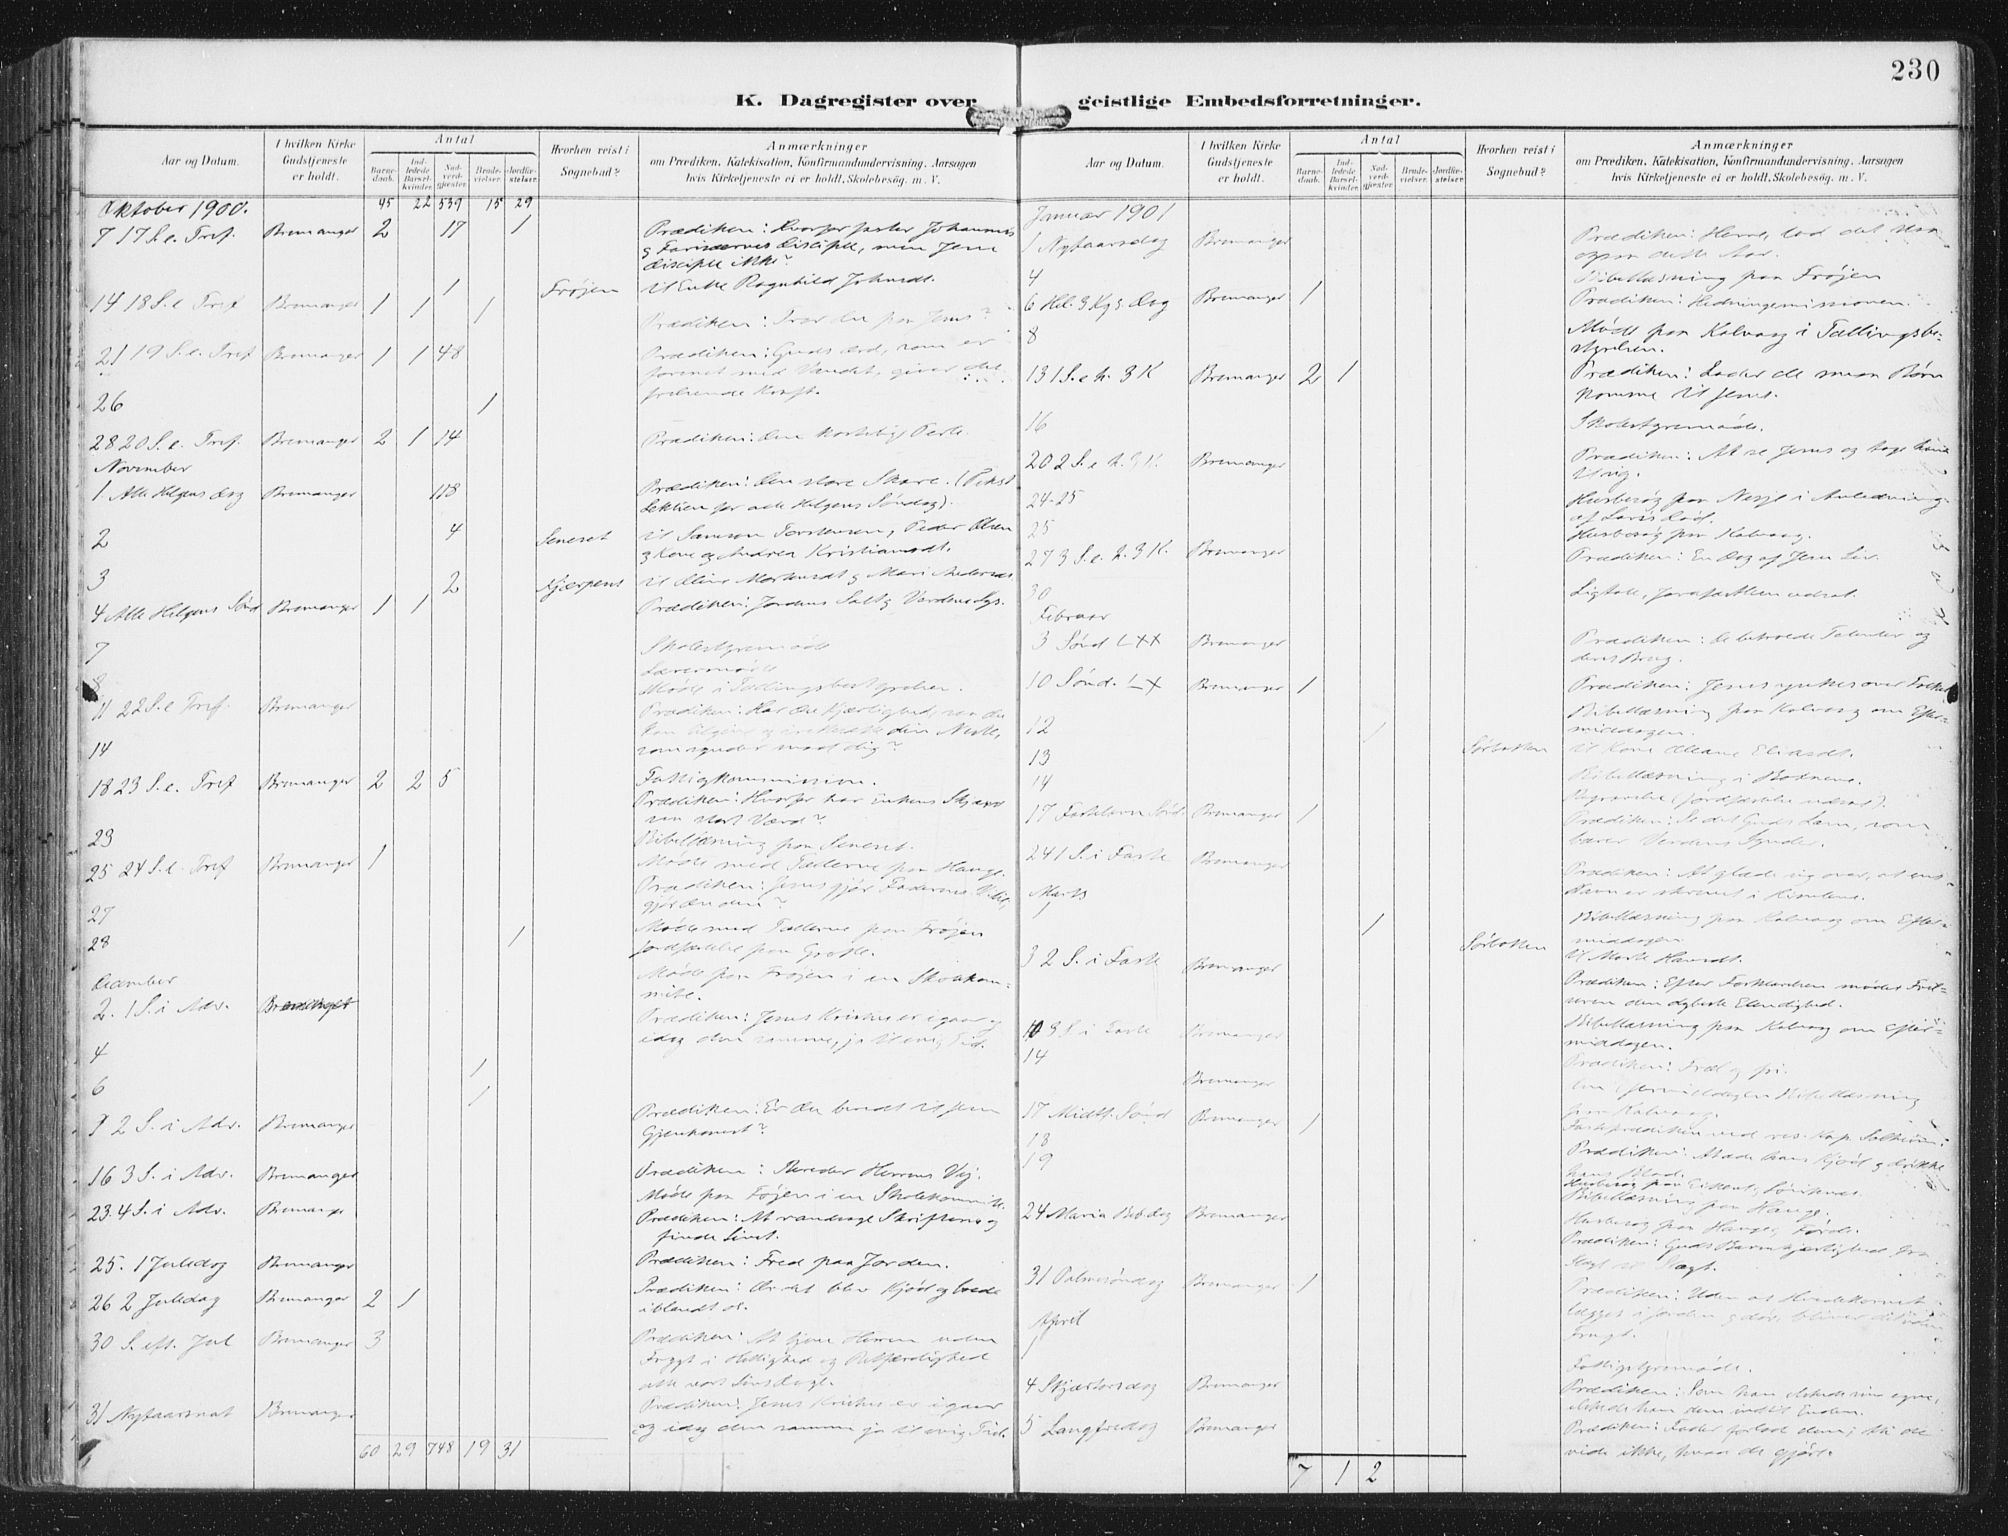 230
K. Dagregister over geistlige Embedsforretninger.
Aar og Datum.
I hvilken Kirke Gudstjeneste er holdt.
Antal
Barnedaab.
Indledede Barselkvinder.
Nadverdgjester.
Brudevielser.
Jordfæstelser.
Hvorhen reist i Sognebud?
Anmærkninger
om Prædiken, Katekisation, Konfirmandundervisning. Aarsagen
hvis Kirketjeneste ei er holdt. Skolebesøg. m. V.
Oktober 1900. 45 22 539 15 29
7 17 S. e. Tref. Bremanger 2 17 1 Prædiken: Hvorfor faster Johannes
og Farisæernes Disciple, men Jesu
Disciple ikke?
1 Frøjen til Enke Ragnhild Johnsdt.
14 18 S. e. Tref Bremanger 1 1 1 Prædiken: Tror du paa Jesus?
21 19 S. e. Tref Bremanger 1 1 48 Prædiken: Guds ord, som er
forenet med Vandet, giver det
frelsende Kraft.
26 1
28 20 S. e. Tref. Bremanger 2 1 14 Prædiken: Den kostelige Perle.
November
1 Alle Helgens Dag Bremanger 118 Prædiken: Den store Skare. (Tekst
Lektien for alle Helgens Søndag).
2 4 Seneset til Samson Torstensen, Peder Olsen
og Kone og Andrea Kristiansdt.
3 2 til Mari
4 Alle Helgens Sønd Bremanger 1 1 Prædiken: Jordens Salt og Verdens Lys.
7 Skolestyremøde
Lærermøde
8 Møde i Tællingsbestyrelsen.
11 22 S. e. Tref. Bremanger Prædiken: Har du Kjærlighed, saa du
kan tilgive din Næste,
som synder mod dig?
14 Fattigkommission.
18 23 S. e. Tref Bremanger 2 2 5 Prædiken: Hvorfor har Enkens Skjærv
saa stort Værd?
23 Bibellæsning paa Seneset.
25 24 S. e. Tref Bremanger 1 Møde med Tællerne paa Hauge.
Prædiken: Jesus gjør Faderens Vilje,
gjør du den?
27 Møde med Tællerne paa Frøjen
28 1 Jordfæstelse paa Grotle.
December Møde paa Frøjen i en Skolekommite.
2. 1 S. i Adv. Prædiken: Jesus Kristus er igaar og
idag den samme, ja til evig Tid.
4 1
6 1
9 2 S. i Adv. Bremanger Prædiken: Er du bundet til Jesu
Gjenkomst?
16 3 S. i Adv. Bremanger Prædiken: Bereder Herrens Vej.
Møde paa Frøjen i en Skolekommite.
23. 4 S. i Adv. Bremanger Prædiken: At randsage Skrifterne og
finde Livet.
25. 1 Juledag Bremanger Prædiken: Fred paa Jorden.
26 2 Juledag Bremanger 2 1 Prædiken: Ordet blev Kjød og boede
iblandt os.
30 S. eft. Jul Bremanger 3 Prædiken: At tjene Herren uden
Frygt i Hellighed og Retfærdighed
alle vort Livs Dage.
31 Nytaarsnat Bremanger Prædiken: Jesus Kristus er igaar
og idag den samme ja til evig Tid.
60 29 748 19 31
Aar og Datum.
I hvilken Kirke Gudstjeneste er holdt.
Antal
Barnedaab.
Indledede Barselkvinder.
Nadverdgjester.
Brudevielser.
Jordfæstelser.
Hvorhen reist i Sognebud?
Anmærkninger
om Prædiken, Katekisation, Konfirmandundervisning. Aarsagen
hvis Kirketjeneste ei er holdt. Skolebesøg. m. V.
Januar 1901
1 Nytaarsdag Bremanger Prædiken: Herre, lad det staa
ogsaa dette Aar.
4 Bibellæsning paa Frøjen
6 Hel. 3 Kgs. Dag Bremanger 1 Prædiken: Hedningemissionen.
8 Møde paa Kalvaag i Tællingsbestyrelsen.
13 1 S. e. h. 3 K Bremanger 2 1 Prædiken: Lader de smaa Børn
komme til Jesus.
16 Skolestyremøde.
20 2 S. e. h. 3 K. Bremanger Prædiken: At se Jesus og tage ham
til sig.
24-25 Husbesøg paa Nesje i Anledning
af Død.
25 Husbesøg paa Kalvaag.
27 3 S. e. h. 3 K. Bremanger Prædiken: En Dag af Jesu Liv.
30 Ligtale,
Februar
3 Sønd. LXX Bremanger Prædiken: De betroede Talenter og
deres Brug.
10 Sønd. LX Bremanger 1 Prædiken: Jesus ynkes over Folket
Bibellæsning paa Kalvaag om Eftermiddagen.
12 1
13 Sørbotten til Kone Eliasdt.
14 Bibellæsning i Botnene.
17 Fastelavns Sønd. Bremanger 1 Prædiken: Se det Guds Lam, som
bærer Verdens Synder.
24 1 S. i Faste Bremanger Prædiken: At glæde sig over, at ens
Navn er skrevet i Himlene.
Marts
1 1 Bibellæsning paa Kalvaag om Eftermiddagen
3 2 S. i Faste Bremanger Sørbotten til Marte Hansdt.
Prædiken: Efter Forklarelsen møder Frelseren den dybeste Elendighed.
10 3 S. i Faste Bremanger Bibellæsning paa Kalvaag om Eftermiddagen.
14 Bremanger Prædiken: Træl og fri.
Om Eftermiddagen Bibellæsning
paa Kalvaag.
17 Midtf. Sønd Bremanger 1 Fasteprædiken ved res. Kap.
18 Prædiken: At æde hans Kjød og drikke
hans Blod.
19 Husbesøg paa
Bibellæsning paa Hauge.
24 Maria Beb. dag Bremanger Husbesøg paa Hauge,
Prædiken: Guds Barmhjertighed fra
Slægt til Slægt.
31 Palmesøndag Bremanger 1 Prædiken: Uden at Hvedekornet
lægges i Jorden og dør, bliver det uden
Frugt.
April
1 Fattigstyremøde.
4 Skjærtorsdag Bremanger Prædiken: Som han elskede sine egne,
elskede han dem indtil Enden.
5 Langfredag Bremanger Prædiken: Fader forlad dem; thi de
vide ikke, hvad de gjøre.
7 1 2